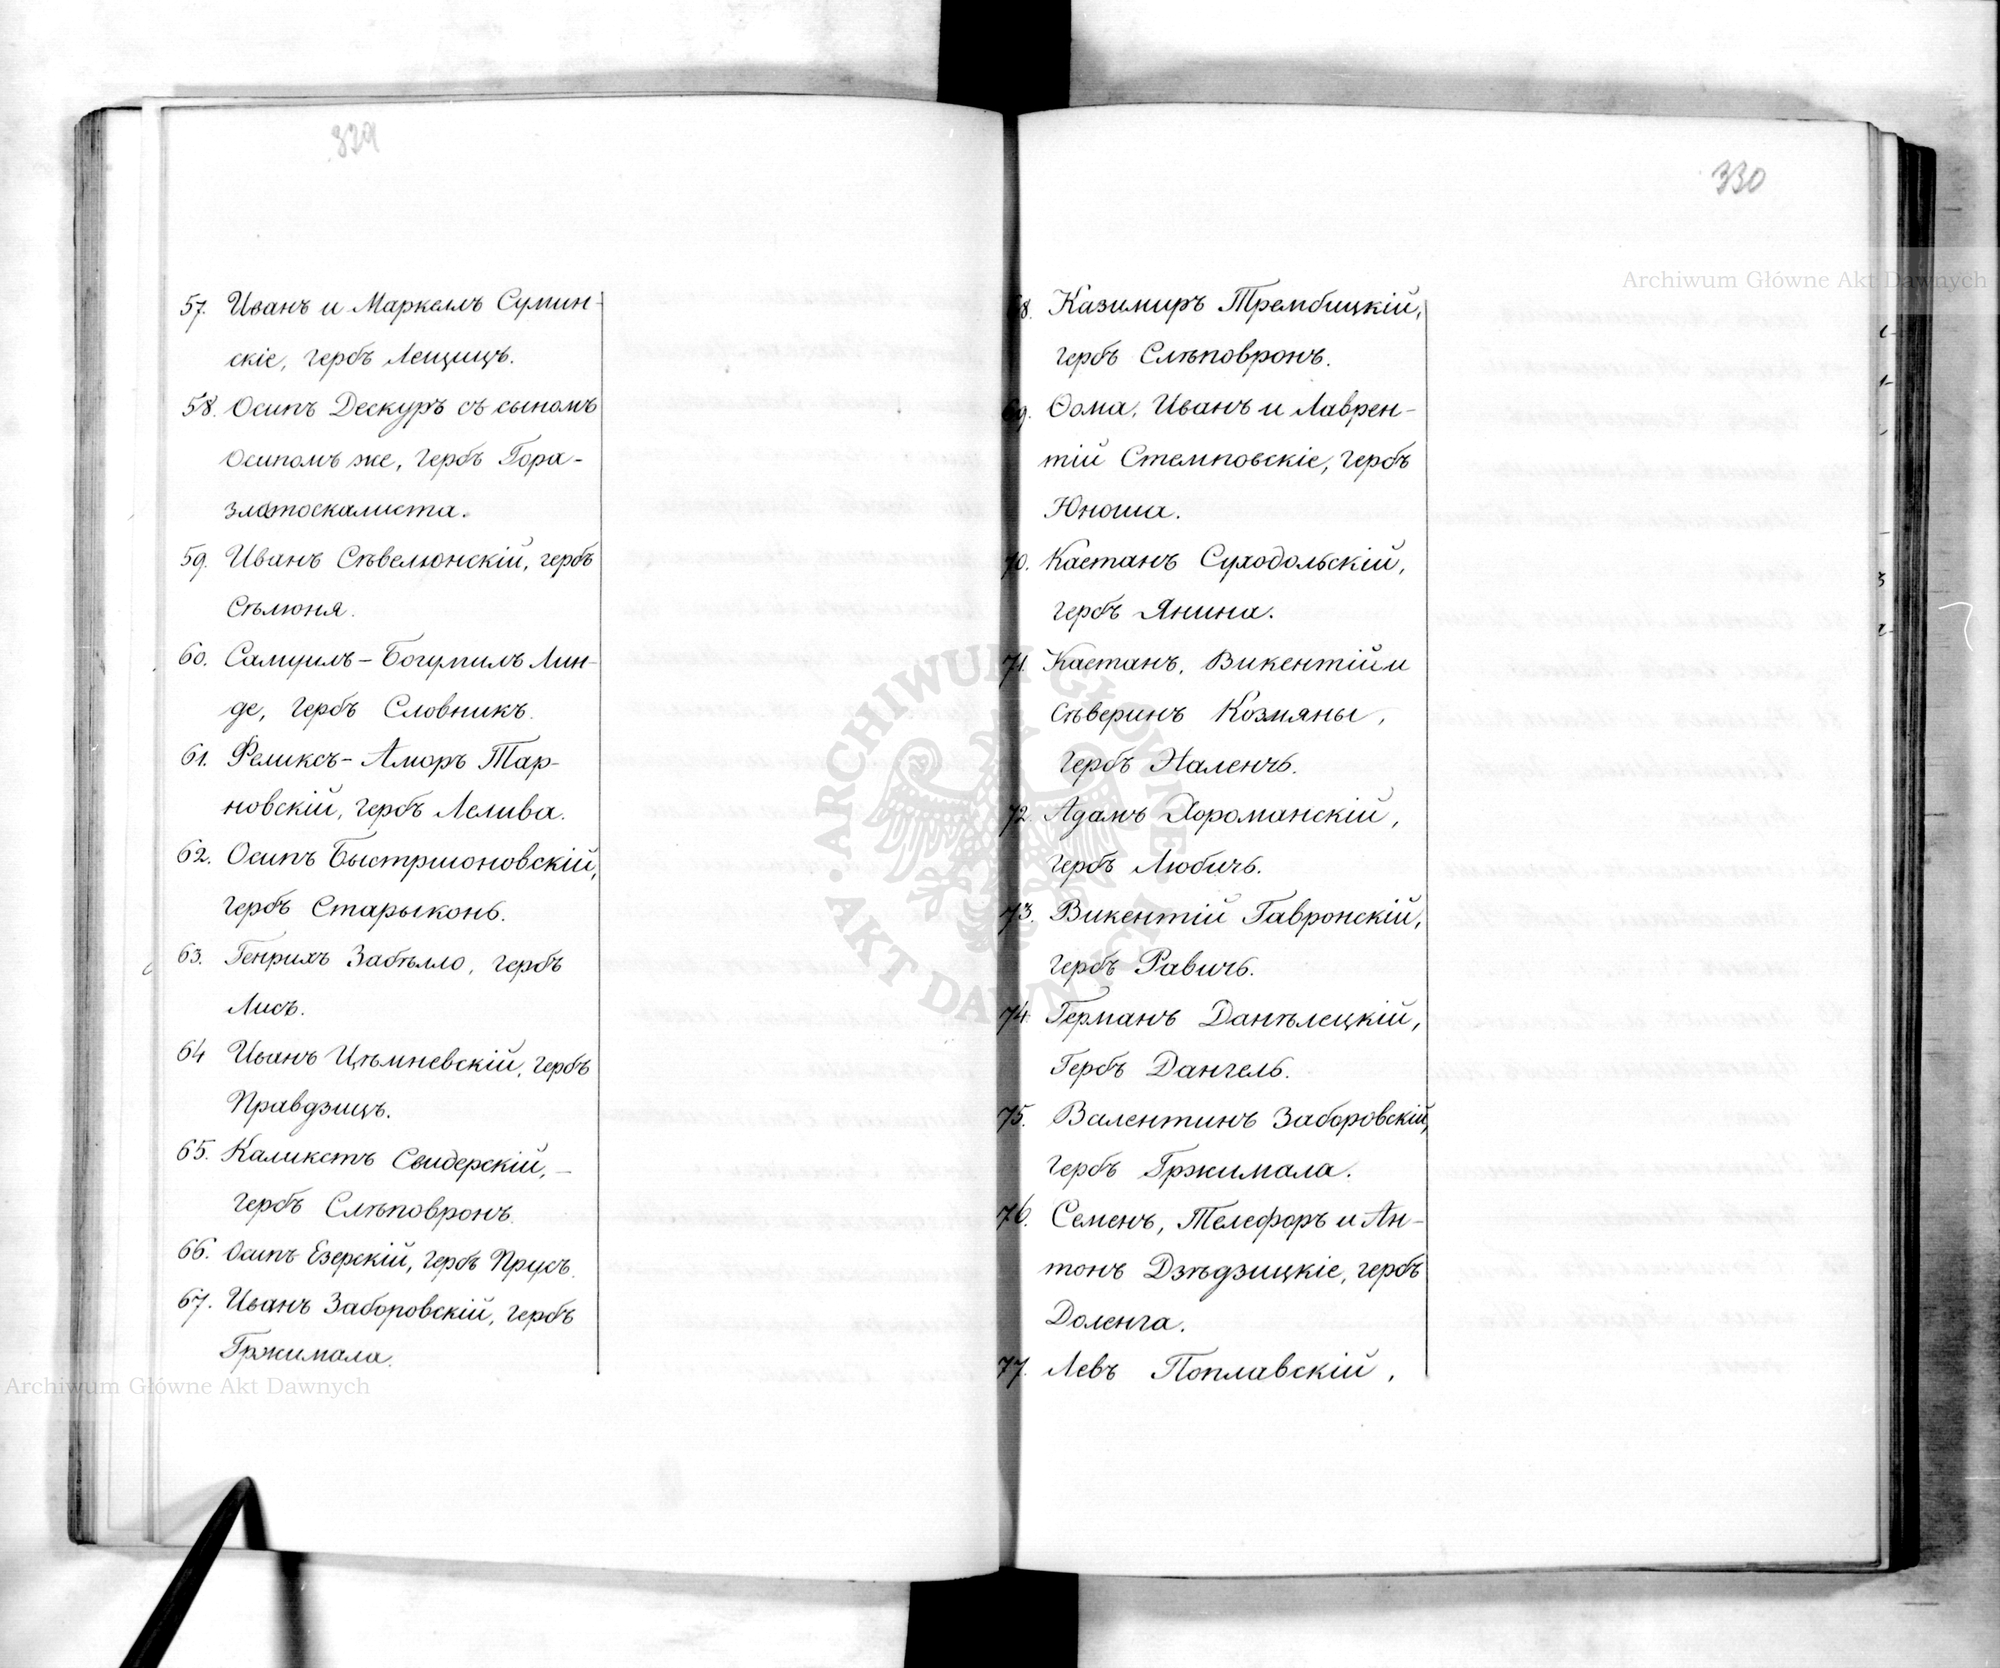 329
57. Иванъ и Маркеллъ Сумин-
скіе, гербъ Лещицъ.
58. Осипъ Дескуръ съ сыномъ
Осипомъ же, гербъ Гора-
златоскалиста.
59. Иванъ Сѣвелюнскій, гербъ
Сѣлюня.
60. Самуилъ-Богумилъ Лин-
де, гербъ Словникъ.
61. Феликсъ-Аморъ Тар-
новскій, гербъ Лелива.
62. Осипъ Быстршоновскій,
гербъ Старыконь.
63. Генрихъ Забѣлло, гербъ
Лисъ.
64 Иванъ Цѣмневскій, гербъ
Правдзицъ.
65. Каликстъ Свидерскій, -
гербъ Слѣповронъ.
66. Осипъ Езерскій, гербъ Прусъ.
67. Иванъ Заборовскій, гербъ
Гржимала.
330
68. Казимиръ Трембицкій,
гербъ Слѣповронъ.
69. Ѳома, Иванъ и Лаврен-
тій Стемповскіе, гербъ
Юноша.
70. Каетанъ Суходольскій,
гербъ Янина.
71. Каетанъ, Викентій и
Сѣверинъ Козмяны,
гербъ Наленчъ.
72. Адамъ Хороманскій,
гербъ Любичъ.
73. Викентій Гавронскій,
гербъ Равичъ.
74. Германъ Данѣлецкій,
Гербъ Дангель.
75. Валентинъ Заборовскій,
гербъ Гржимала.
76. Семенъ, Телефоръ и Ан-
тонъ Дзѣдзицкіе, гербъ
Доленга.
77. Левъ Поплавскій,
Archiwum Główne Akt Dawnych
ARCHIWUM GŁÓWNE AKT DAWNYCH
Archiwum Główne Akt Dawnych